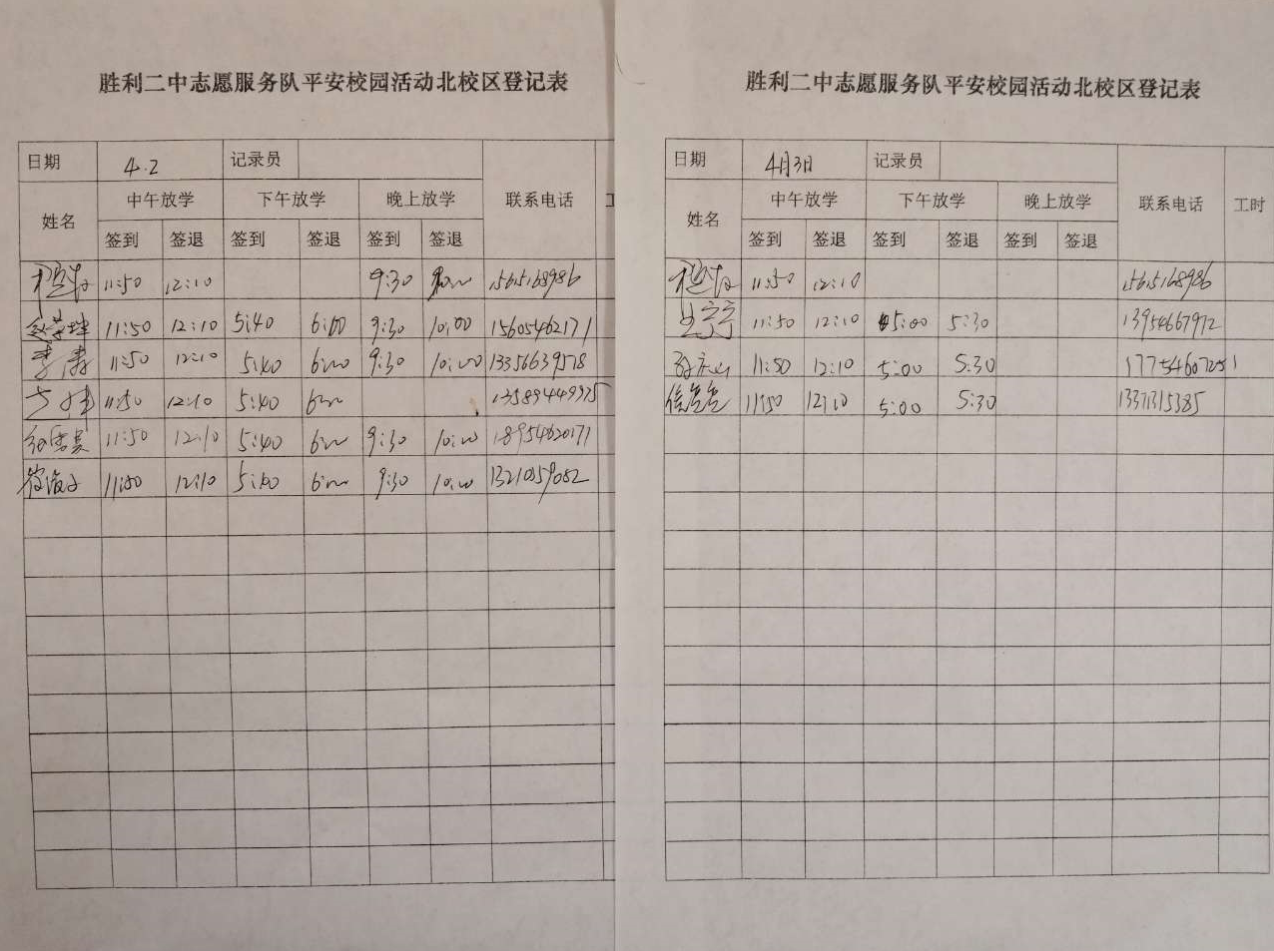 胜利二中志愿服务队平安校园活动北校区登记表
日期 4.2 记录员
姓名 中午放学 下午放学 晚上放学 联系电话
签到 签退 签到 签退 签到 签退
11:50 12:10 9:30
11:50 12:10 5:40 6:00 9:30 10:00 15605462171
李涛 11:50 12:10 5:40 6:00 9:30 10:00 13356639578
11:50 12:10 5:40 6:00
11:50 12:10 5:40 6:00 9:30 10:00 18954620171
11:50 12:10 5:40 6:00 9:30 10:00
胜利二中志愿服务队平安校园活动北校区登记表
日期 4月3日 记录员
姓名 中午放学 下午放学 晚上放学 联系电话 工时
签到 签退 签到 签退 签到 签退
11:50 12:10
11:50 12:10 5:00 5:30 13954667972
11:50 12:10 5:00 5:30
11:50 12:10 5:00 5:30 13371315385